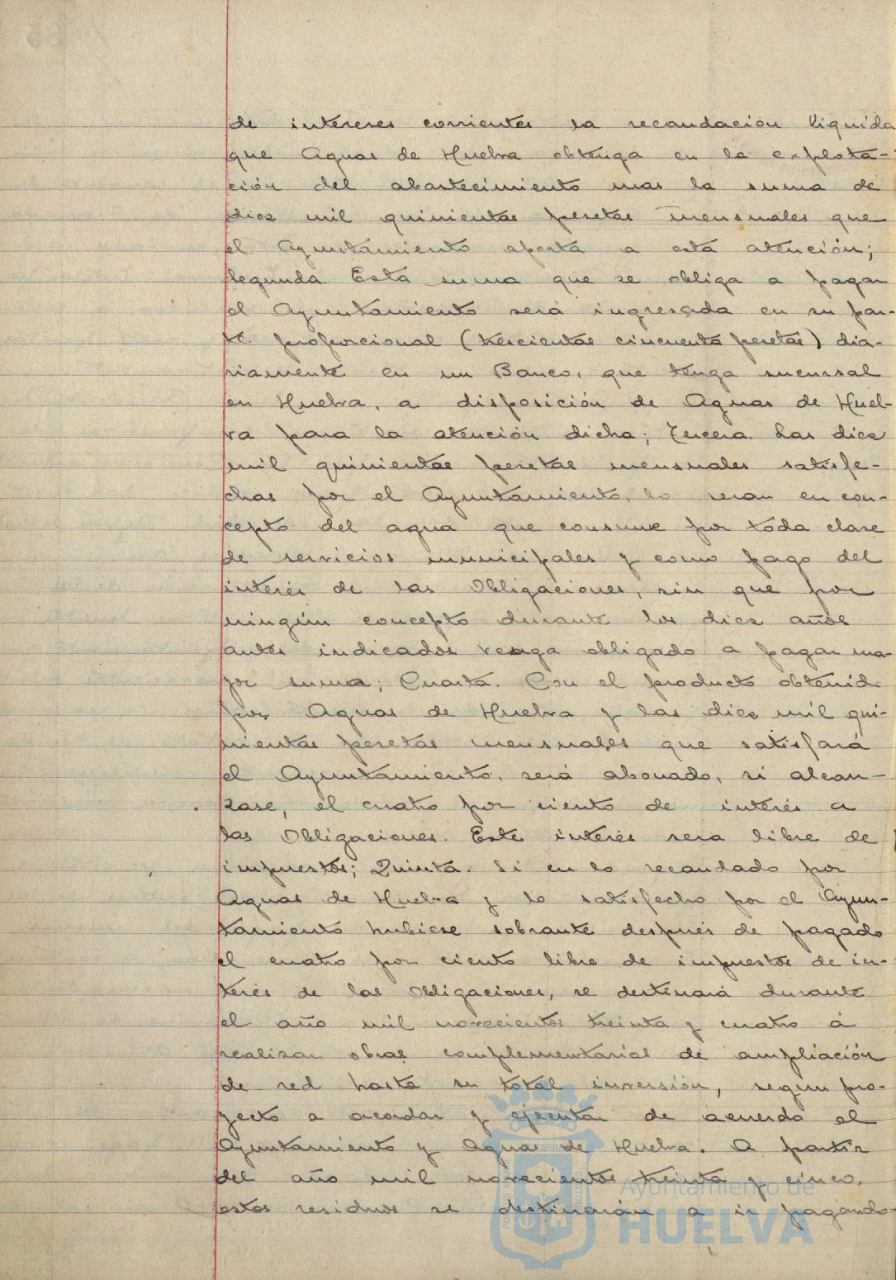 de intereses corrientes la recaudación liquida
que Aguas de Huelva obtenga en la explota-
ción del abastecimiento mas la suma de
diez mil quinientas pesetas mensuales que
el Ayuntamiento aporta a esta atención;
Segunda. Esta suma que se obliga a pagar
el Ayuntamiento será ingresada en su par-
te proporcional (trescientas cincuenta pesetas) dia-
riamente en un Banco, que tenga sucursal
en Huelva, a disposición de Aguas de Huel-
va para la atención dicha; Tercera. Las diez
mil quinientas pesetas mensuales satisfe-
chas por el Ayuntamiento, lo seran en con-
cepto del agua que consume por toda clase
de servicios municipales y como pago del
interés de las Obligaciones, sin que por
ningún concepto durante los diez años
antes indicados venga obligado a pagar ma-
yor suma; Cuarta. Con el producto obtenid
por Aguas de Huelva y las diez mil qui-
nientas pesetas mensuales que satisfará
el Ayuntamiento, será abonado, si alcan-
zase, el cuatro por ciento de interés a
las Obligaciones. Este interés sera libre de
impuestos; Quinta. Si en lo recaudado por
Aguas de Huelva y lo satisfecho por el Ayun-
tamiento hubiese sobrante después de pagado
el cuatro por ciento libre de impuestos de in-
terés de las Obligaciones, se destinará durante
el año mil novecientos treinta y cuatro á
realizar obras complementarias de ampliación
de red hasta su total inversión, segun pro-
yecto a acordar y ejecutar de acuerdo el
Ayuntamiento y Aguas de Huelva. A partir
del año mil novecientos treinta y cinco,
estos residuos se destinarán a ir pagando
Ayuntamiento de
HUELVA